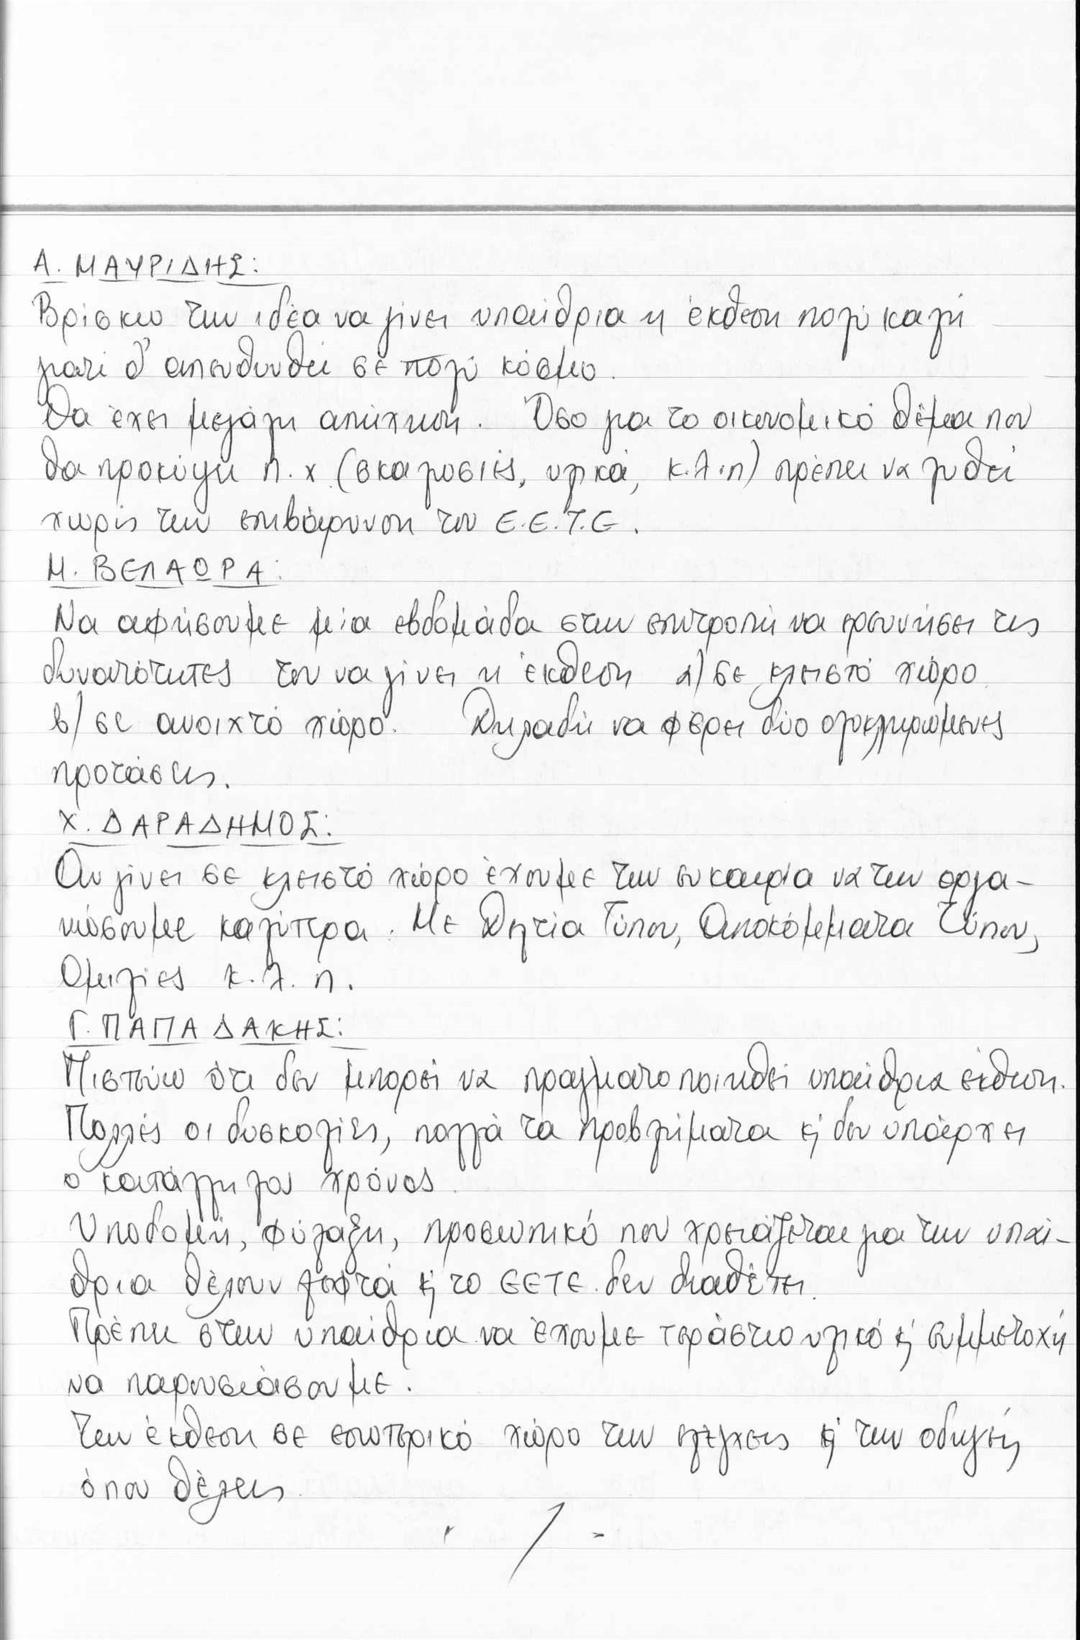 Α. ΜΑΥΡΙΔΗΣ:
Βρίσκω την ιδέα να γίνει υπαίθρια η έκθεση πολύ καλή
γιατί θ' απευθυνθεί σε πολύ κόσμο.
Θα έχει μεγάλη απήχηση. Όσο για το οικονομικό θέμα που
θα προκύψει π.χ (σκαλωσιές, υλικά, κ.λ.π) πρέπει να λυθεί
χωρίς την επιβάρυνση του Ε.Ε.Τ.Ε.
Μ. ΒΕΛΑΩΡΑ:
Να αφήσουμε μία εβδομάδα στην επιτροπή να ερευνήσει τις
δυνατότητες του να γίνει η έκθεση α/ σε κλειστό χώρο
β/ σε ανοιχτό χώρο. Δηλαδή να φέρει δύο ολοκληρωμένες
προτάσεις.
Χ. ΔΑΡΑΔΗΜΟΣ:
Αν γίνει σε κλειστό χώρο έχουμε την ευκαιρία να την οργα-
νώσουμε καλύτερα. Με Δελτία Τύπου, Αποκόμματα Τύπου,
Ομιλίες κ.λ.π.
Γ. ΠΑΠΑΔΑΚΗΣ:
Πιστεύω ότι δεν μπορεί να πραγματοποιηθεί υπαίθρια έκθεση.
Πολλές οι δυσκολίες, πολλά τα προβλήματα κ' δεν υπάρχει
ο κατάλληλος χρόνος.
Υποδομή, φύλαξη, προσωπικό που χρειάζεται για την υπαί-
θρια θέλουν λεφτά κ' το ΕΕΤΕ δεν διαθέτει.
Πρέπει στην υπαίθρια να έχουμε τεράστιο υλικό κ' συμμετοχή
να παρουσιάσουμε.
Την έκθεση σε εσωτερικό χώρο την ελέγχεις κ' την οδηγείς
όπου θέλεις.